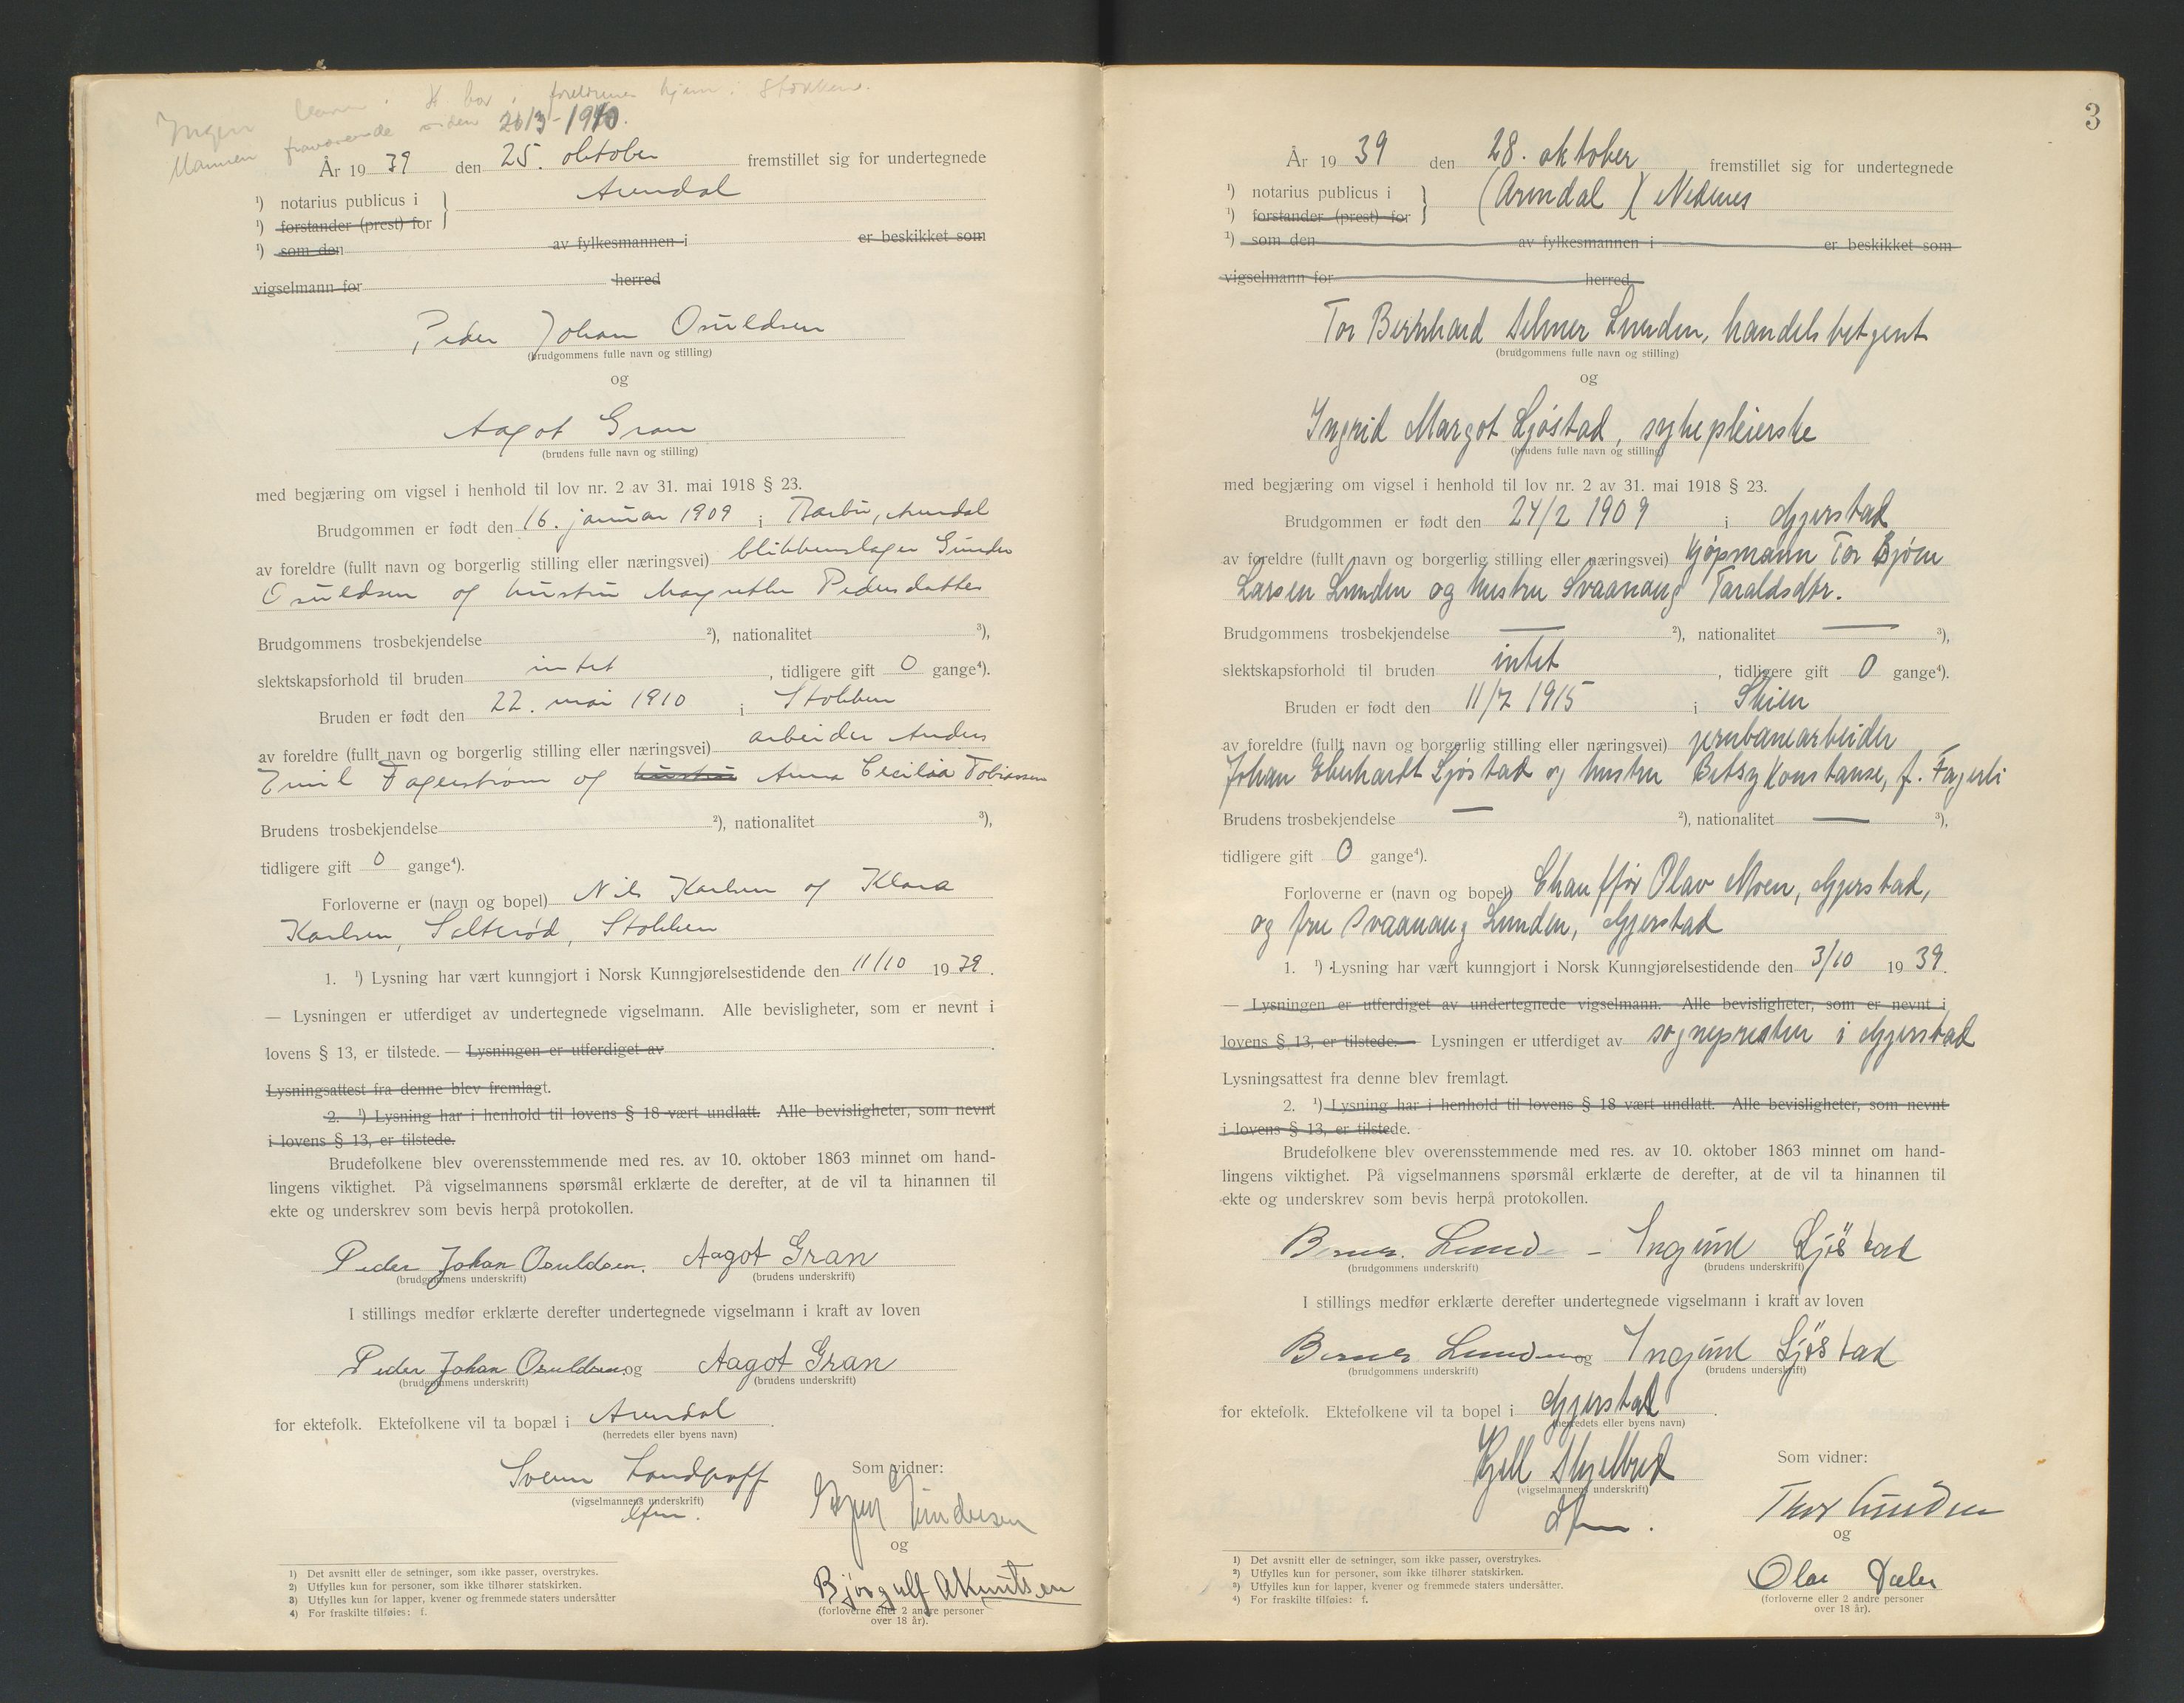 Ingen barn. H. bor i foreldrenes hjem i Stokken.
Mannen fraværende siden 20/3-1940.
År 19 39 den 25. oktober fremstillet sig for undertegnede
¹) notarius publicus i } Arendal
¹) forstander (prest) for
¹) som den av fylkesmannen i er beskikket som
vigselmann for herred
Peder Johan Osuldsen
(brudgommens fulle navn og stilling)
og
Aagot Gran
(brudens fulle navn og stilling)
med begjæring om vigsel i henhold til lov nr. 2 av 31. mai 1918 § 23.
Brudgommen er født den 16. januar 1909 i Barbu, Arendal
av foreldre (fullt navn og borgerlig stilling eller næringsvei) blikkenslager Gunder
Osuldsen og hustru Margrethe Pedersdatter
Brudgommens trosbekjendelse ²), nationalitet ³),
slektskapsforhold til bruden intet , tidligere gift 0 gange⁴).
Bruden er født den 22. mai 1910 i Stokken
av foreldre (fullt navn og borgerlig stilling eller næringsvei) arbeider Anders
Emil Fagerstrøm og hustru Anna Cecilia Tobiassen
Brudens trosbekjendelse ²), nationalitet ³),
tidligere gift 0 gange⁴).
Forloverne er (navn og bopel) Nils Karlsen og Klara
Karlsen, Salterød, Stokken
1. ¹) Lysning har vært kunngjort i Norsk Kunngjørelsestidende den 11/10 19 39.
— Lysningen er utferdiget av undertegnede vigselmann. Alle bevisligheter, som er nevnt i
lovens § 13, er tilstede. — Lysningen er utferdiget av .
Lysningsattest fra denne blev fremlagt.
2. ¹) Lysning har i henhold til lovens § 18 vært undlatt. Alle bevisligheter, som nevnt
i lovens § 13, er tilstede.
Brudefolkene blev overensstemmende med res. av 10. oktober 1863 minnet om hand-
lingens viktighet. På vigselmannens spørsmål erklærte de derefter, at de vil ta hinannen til
ekte og underskrev som bevis herpå protokollen.
Peder Johan Osuldsen. Aagot Gran
(brudgommens underskrift) (brudens underskrift)
I stillings medfør erklærte derefter undertegnede vigselmann i kraft av loven
Peder Johan Osuldsen og Aagot Gran
(brudgommens underskrift) (brudens underskrift)
for ektefolk. Ektefolkene vil ta bopæl i Arendal .
(herredets eller byens navn)
Svenn
Som vidner:
(vigselmannens underskrift)
Gundersen
og
Bjørgulf A Knutsen
(forloverne eller 2 andre personer
over 18 år).
1) Det avsnitt eller de setninger, som ikke passer, overstrykes.
2) Utfylles kun for personer, som ikke tilhører statskirken.
3) Utfylles kun for lapper, kvener og fremmede staters undersåtter
4) For fraskilte tilføies: f.
3
År 19 39 den 28. oktober fremstillet sig for undertegnede
¹) notarius publicus i } (Arendal) ( Nedenes
¹) forstander (prest) for
¹) som den av fylkesmannen i er beskikket som
vigselmann for herred
Tor Bernhard Selmer Lunden, handelsbetjent
(brudgommens fulle navn og stilling)
og
Ingrid Margot Ljøstad, sykepleierske
(brudens fulle navn og stilling)
med begjæring om vigsel i henhold til lov nr. 2 av 31. mai 1918 § 23.
Brudgommen er født den 24/2 1909 i Gjerstad
av foreldre (fullt navn og borgerlig stilling eller næringsvei) kjøpmann Tor Bjørn
Larsen Lunden og hustru Svaanaug Taraldsdtr.
Brudgommens trosbekjendelse — ²), nationalitet — ³),
slektskapsforhold til bruden intet , tidligere gift 0 gange⁴).
Bruden er født den 11/7 1915 i Skien
av foreldre (fullt navn og borgerlig stilling eller næringsvei) jernbanearbeider
Johan Eberhardt Ljøstad og hustru Betsy Konstanse, f. Fagerli
Brudens trosbekjendelse — ²), nationalitet — ³),
tidligere gift 0 gange⁴).
Forloverne er (navn og bopel) Chauffør Olav Moen, Gjerstad,
og fru Svaanaug Lunden, Gjerstad
1. ¹) Lysning har vært kunngjort i Norsk Kunngjørelsestidende den 3/10 19 39.
— Lysningen er utferdiget av undertegnede vigselmann. Alle bevisligheter, som er nevnt i
lovens § 13, er tilstede. — Lysningen er utferdiget av sognepresten i Gjerstad
Lysningsattest fra denne blev fremlagt.
2. ¹) Lysning har i henhold til lovens § 18 vært undlatt. Alle bevisligheter, som nevnt
i lovens § 13, er tilstede.
Brudefolkene blev overensstemmende med res. av 10. oktober 1863 minnet om hand-
lingens viktighet. På vigselmannens spørsmål erklærte de derefter, at de vil ta hinannen til
ekte og underskrev som bevis herpå protokollen.
Lunde - Ingrid Ljöstad
(brudgommens underskrift) (brudens underskrift)
I stillings medfør erklærte derefter undertegnede vigselmann i kraft av loven
Lunden og Ingrid Ljöstad
(brudgommens underskrift) (brudens underskrift)
for ektefolk. Ektefolkene vil ta bopel i Gjerstad .
(herredets eller byens navn)
Kjell Skjelbred
Som vidner:
(vigselmannens underskrift)
Thor Lunden
og
Olav
(forloverne eller 2 andre personer
over 18 år).
1) Det avsnitt eller de setninger, som ikke passer, overstrykes.
2) Utfylles kun for personer, som ikke tilhører statskirken.
3) Utfylles kun for lapper, kvener og fremmede staters undersåtter.
4) For fraskilte tilføies: f.